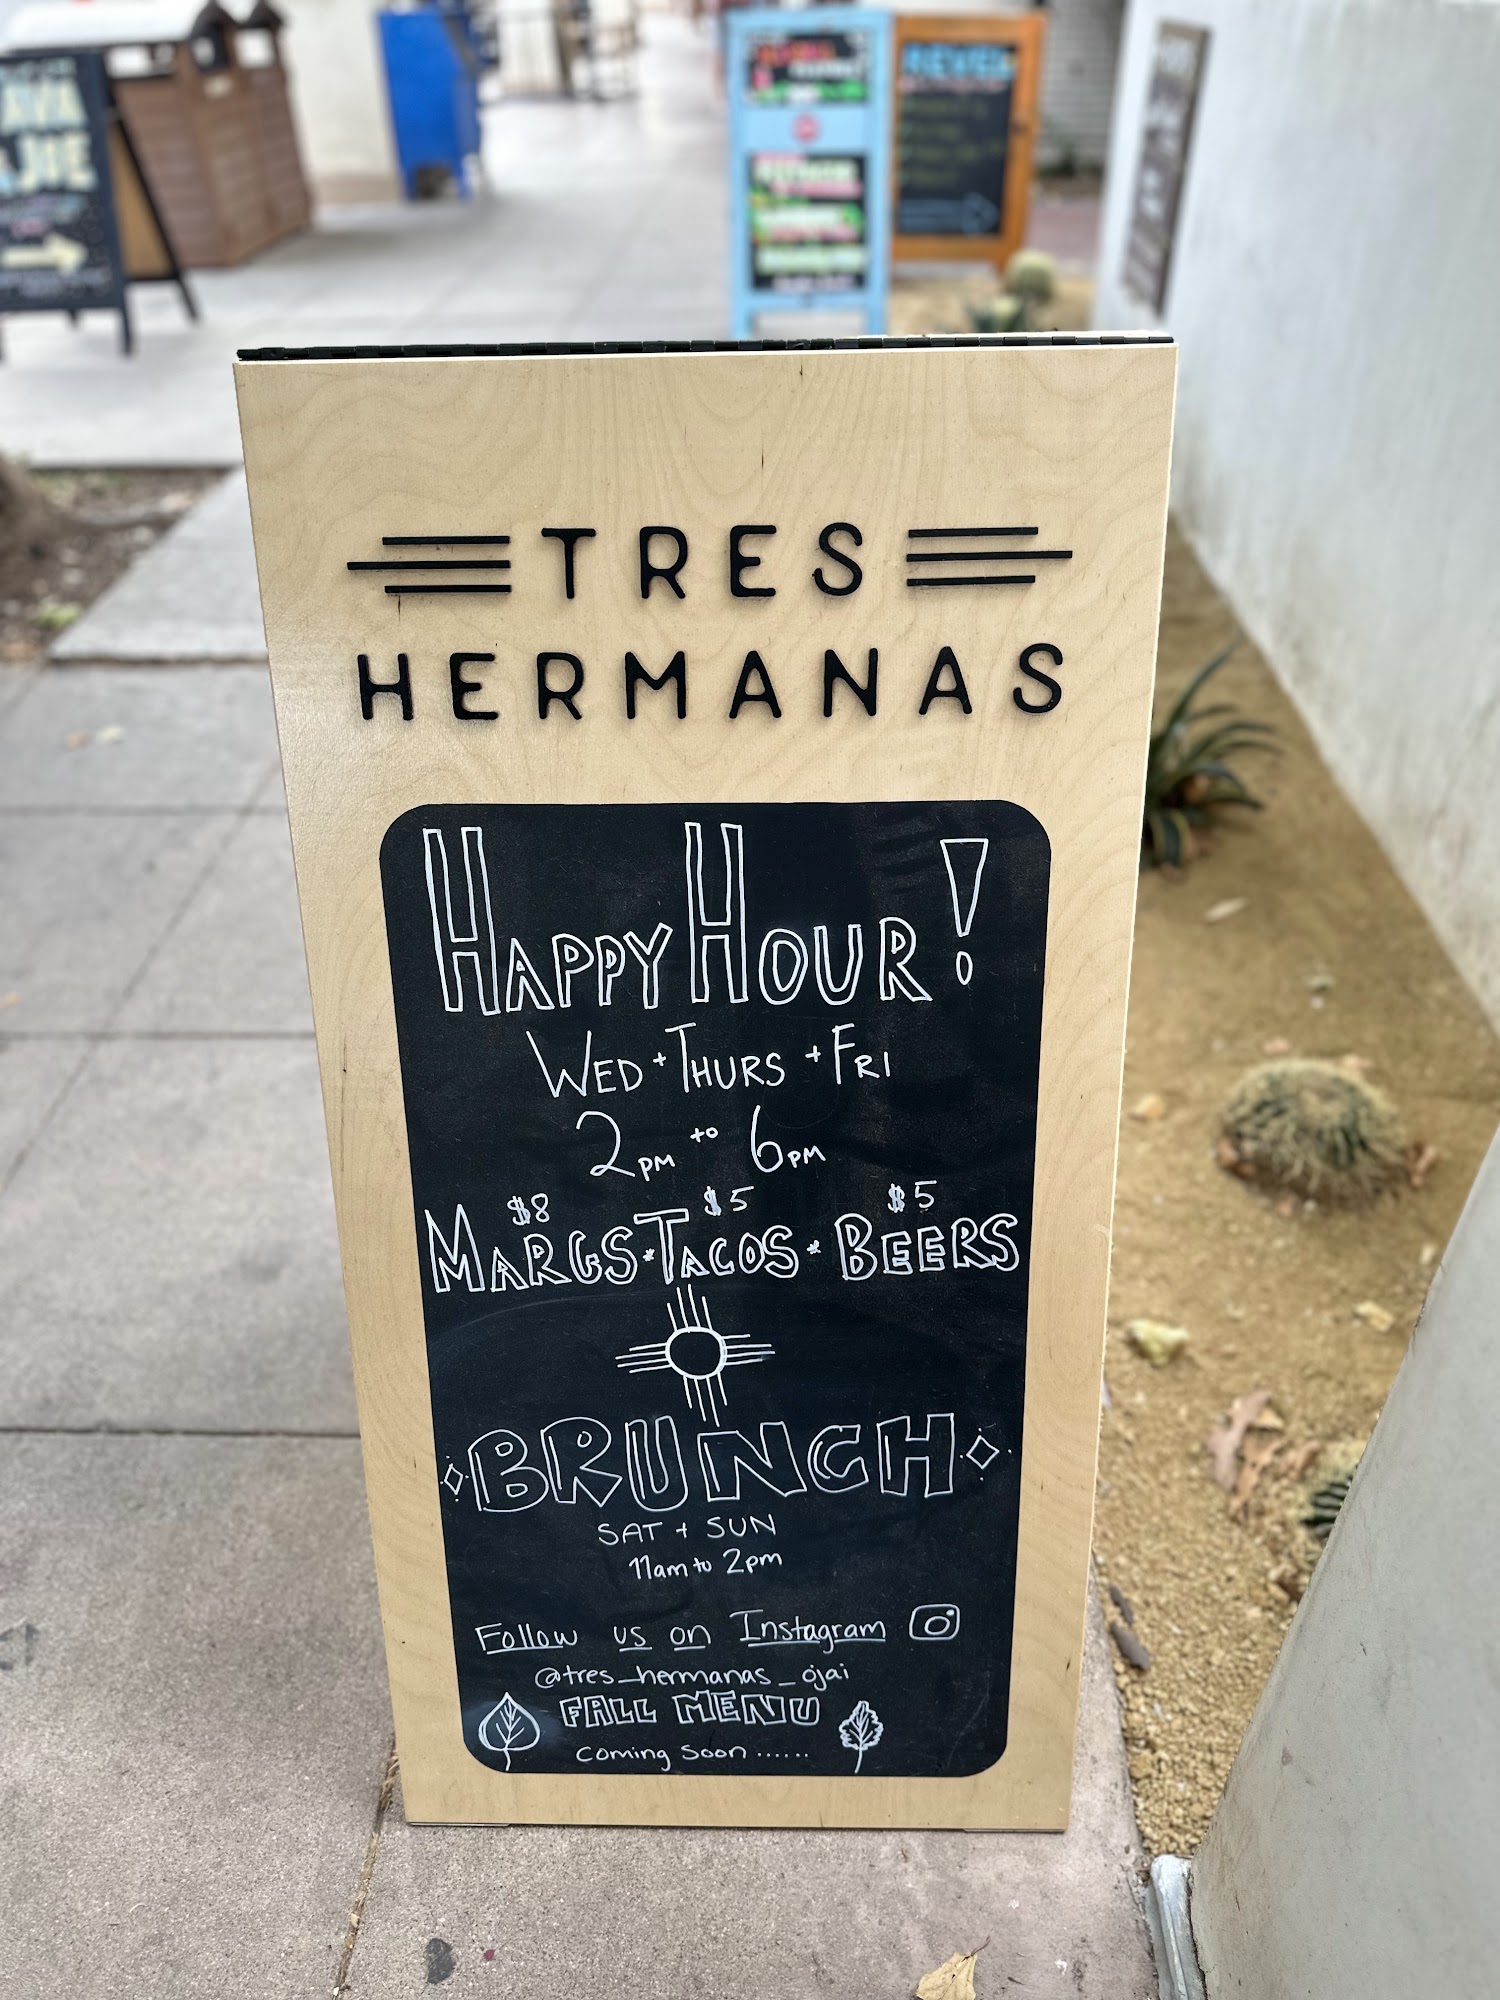 TRES
HERMANAS
HAPPY HOUR!
WED + THURS + FRI
2PM to 6PM
$8 $5 $5
MARGS * TACOS * BEERS
BRUNCH
SAT + SUN
11am to 2pm
Follow us on Instagram
@tres_hermanas_ojai
FALL MENU
Coming Soon ......
AVA
JOE
REVEL